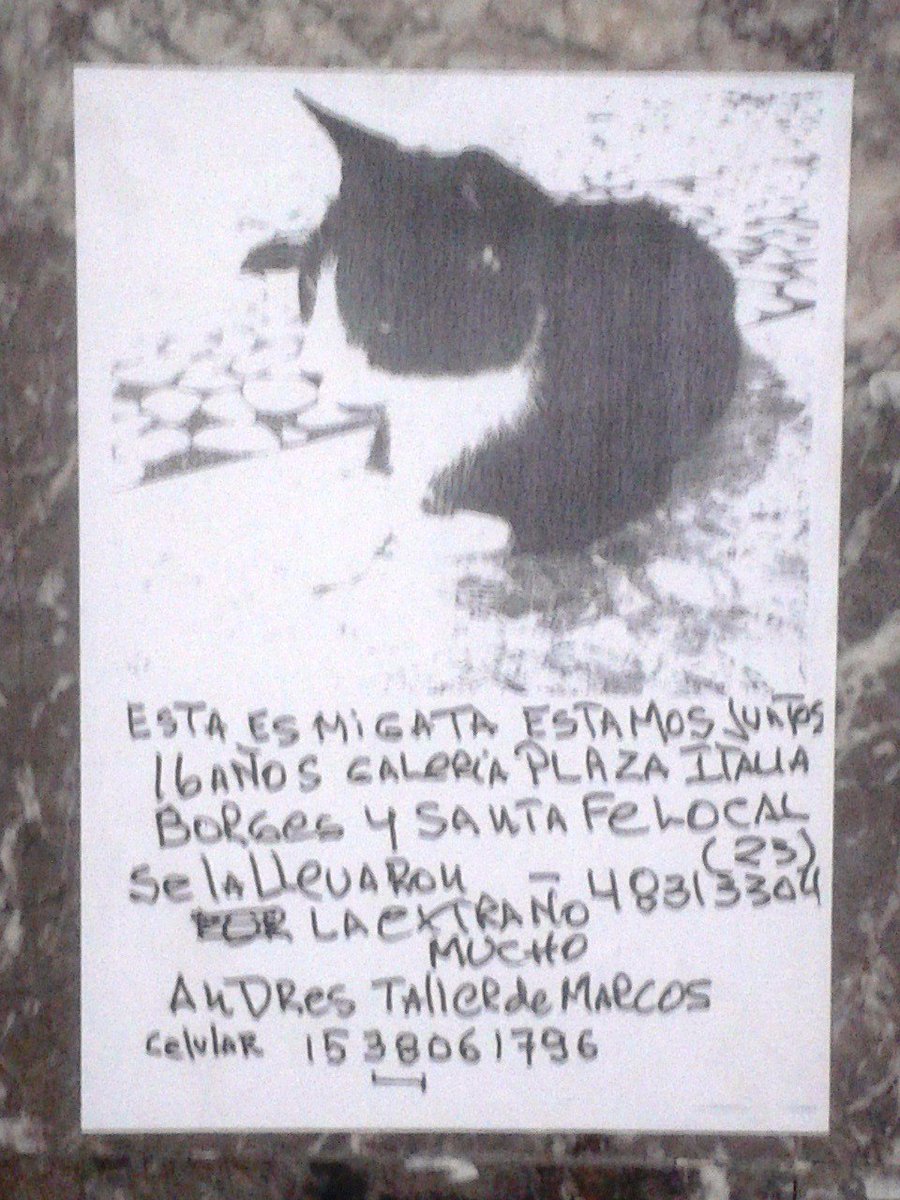 ESTA ES MI GATA ESTAMOS JUNTOS
16 AÑOS GALERIA PLAZA ITALIA
BORGES Y SANTA FE LOCAL
(23)
SE LA LLEVARON - 48313304
POR LA EXTRAÑO
MUCHO
ANDRES TALLER DE MARCOS
CELULAR 1538061796